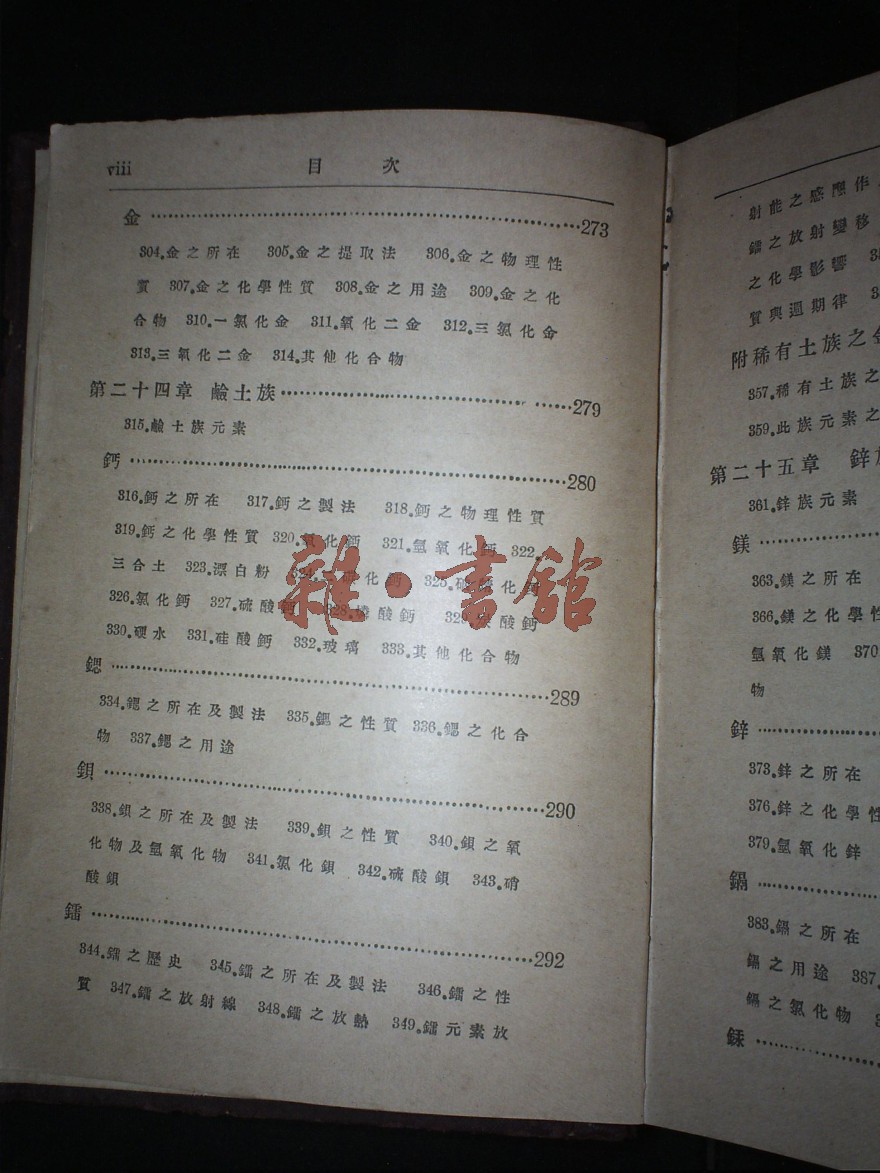 viii 目 次
金 273
304.金之所在 305.金之提取法 306.金之物理性
質 307.金之化學性質 308.金之用途 309.金之化
合物 310.一氯化金 311.氧化二金 312.三氯化金
313.三氧化二金 314.其他化合物
第二十四章 鹼土族 279
315.鹼土族元素
鈣 280
316.鈣之所在 317.鈣之製法 318.鈣之物理性質
319.鈣之化學性質 320.氧化鈣 321.氫氧化鈣 322.
三合土 323.漂白粉 324. 化鈣 325. 化鈣
326.氯化鈣 327.硫酸鈣 328.燐酸鈣 329.碳酸鈣
330.硬水 331.硅酸鈣 332.玻璃 333.其他化合物
鍶 289
334.鍶之所在及製法 335.鍶之性質 336.鍶之化合
物 337.鍶之用途
鋇 290
338.鋇之所在及製法 339.鋇之性質 340.鋇之氧
化物及氫氧化物 341.氯化鋇 342.硫酸鋇 343.硝
酸鋇
鐳 292
344.鐳之歷史 345.鐳之所在及製法 346.鐳之性
質 347.鐳之放射線 348.鐳之放熱 349.鐳元素放
射能之感應作
鐳之放射變移
之化學影響
質與週期律
附稀有土族之金
357.稀有土族之
359.此族元素之
第二十五章 鋅族
361.鋅族元素
鎂
363.鎂之所在
366.鎂之化學性
氫氧化鎂 370.
物
鋅
373.鋅之所在
376.鋅之化學性
379.氫氧化鋅
鎘
383.鎘之所在
鎘之用途 387.
鎘之氯化物
銾
雜·書館